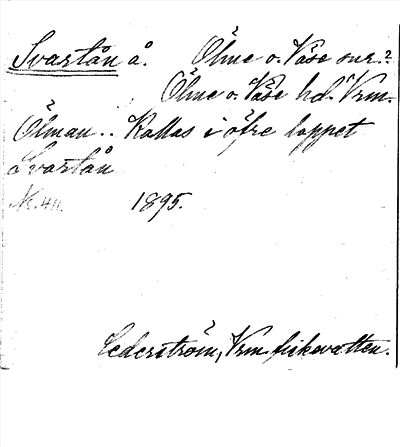 Svartån å. Ölme o. Väse snr.?
Ölme o. Väse hd. Vrm.
Ölman.. Kallas i öfre loppet
Svartån
1895.
Cederström, Vrm. fiskevatten.